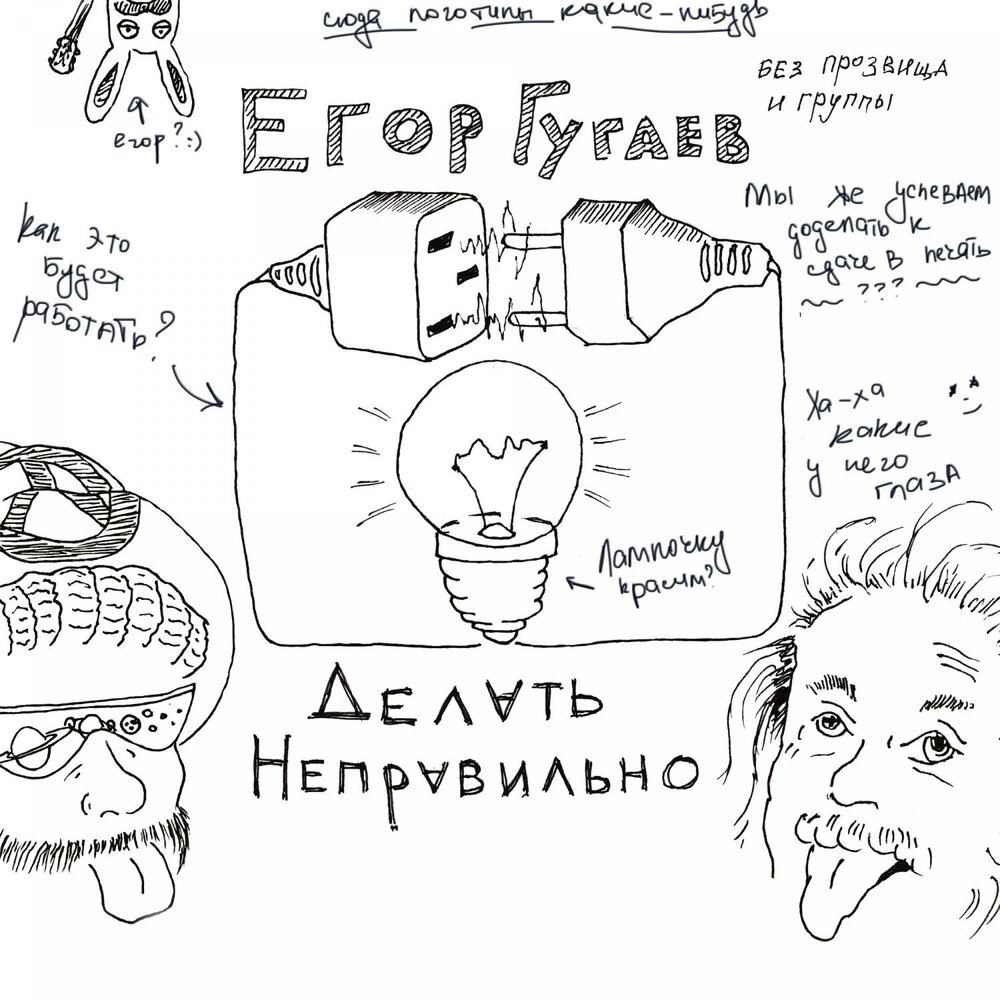 сюда логотипы какие-нибудь
БЕЗ ПРОЗВИЩА
И ГРУППЫ
ЕГОР ГУГАЕВ
егор? :)
Мы же успеваем
доделать к
сдаче в печать
~ ??? ~
Как это
будет
работать?
Ха-ха
какие
у него
глаза
Лампочку
красим?
ДЕЛАТЬ
НЕПРАВИЛЬНО